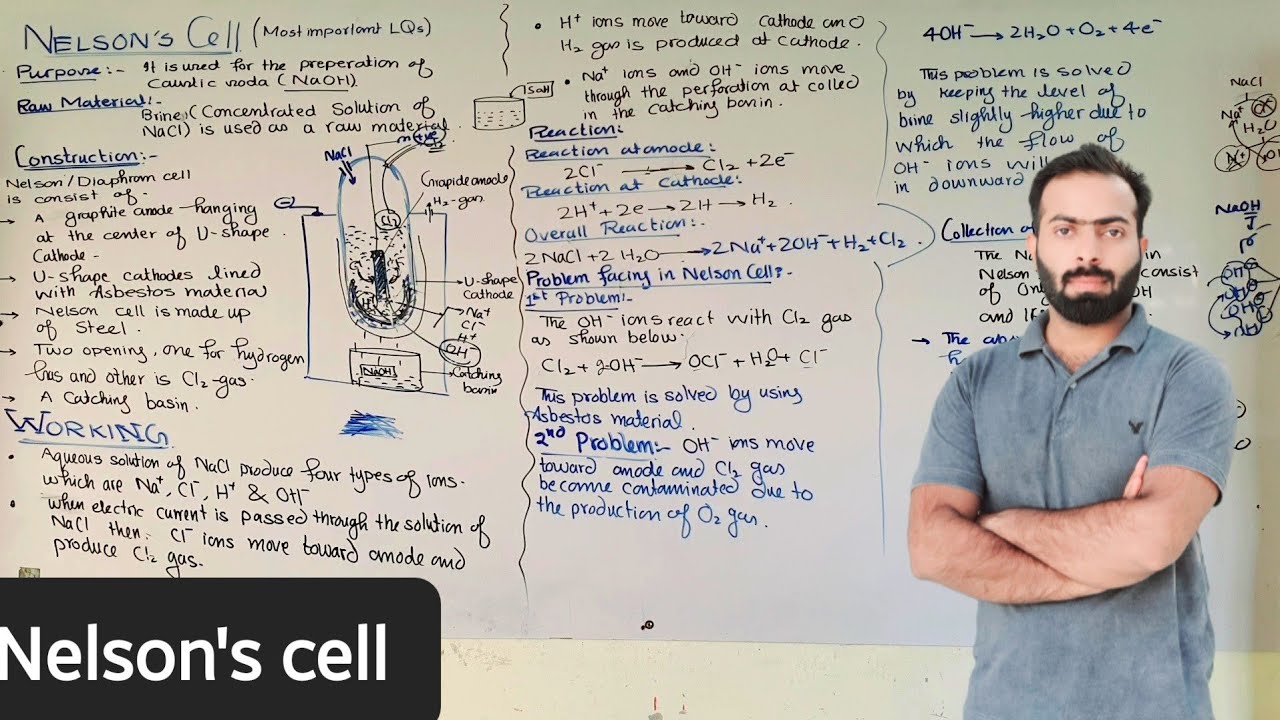 NELSON'S Cell (Most important LQs)
Purpose:- It is used for the preperation of
Caustic soda (NaOH)
Raw Material:-
Brine (Concentrated Solution of
NaCl) is used as a raw material.
Construction:-
Nelson/Diaphrom cell
is consist of -
→ A graphite anode hanging
at the center of U-shape
Cathode -
→ U-shape cathodes lined
with Asbestos material
→ Nelson cell is made up
of Steel.
→ Two opening, one for hydrogen
gas and other is Cl2-gas.
→ A Catching basin.
NaCl
Grapide anode
H2-gas
Cl2
U-shape
Cathode
Na+
Cl-
H+
OH-
NaOH
Catching
basin
WORKING
• Aqueous solution of NaCl produce four types of ions.
which are Na+, Cl-, H+ & OH-
• when electric current is passed through the solution of
NaCl then. Cl- ions move toward anode and
produce Cl2 gas.
• H+ ions move toward cathode and
H2 gas is produced at cathode.
• Na+ ions and OH- ions move
through the perforation at colled
in the catching basin.
Reaction:
Reaction at anode:
2Cl- → Cl2 + 2e-
Reaction at Cathode:
2H+ + 2e → 2H → H2
Overall Reaction:-
2NaCl + 2H2O → 2Na+ + 2OH- + H2 + Cl2
Problem facing in Nelson Cell:-
1st Problem:-
The OH- ions react with Cl2 gas
as shown below.
Cl2 + 2OH- → OCl- + H2O + Cl-
This problem is solved by using
Asbestos material.
2nd Problem:- OH- ions move
toward anode and Cl2 gas
become contaminated due to
the production of O2 gas.
4OH- → 2H2O + O2 + 4e-
This problem is solved
by keeping the level of
brine slightly higher due to
which the flow of
OH- ions will
in downward
Collection
The
Nelson consist
of
and
→ The
NaCl
Na+
H2O
NaOH
Nelson's cell